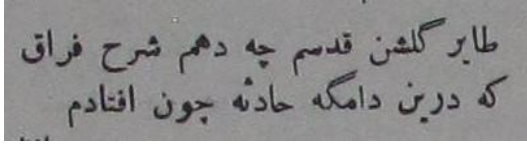 طایر گلشن قدسم چه دهم شرح فراق
که درین دامگه حادثه چون افتادم